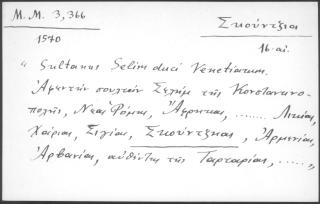 M. M. 3,366
Σκούντζια
1570
16 αἰ.
" Sultanus Selim duci Venetiarum.
Ἀμεντὴν σουλτὰν Σελὴμ τῆς Κοσταντινο-
πολης, Νέας Ρόμης, Ἄφρηκας, ....... Λικίας,
Χαίριας, Σιγίας, Σκούντζηας, Ἀρμενίας,
Ἀρβανίας, αὐθέντης τῆς Ταρταρίας, ..... "